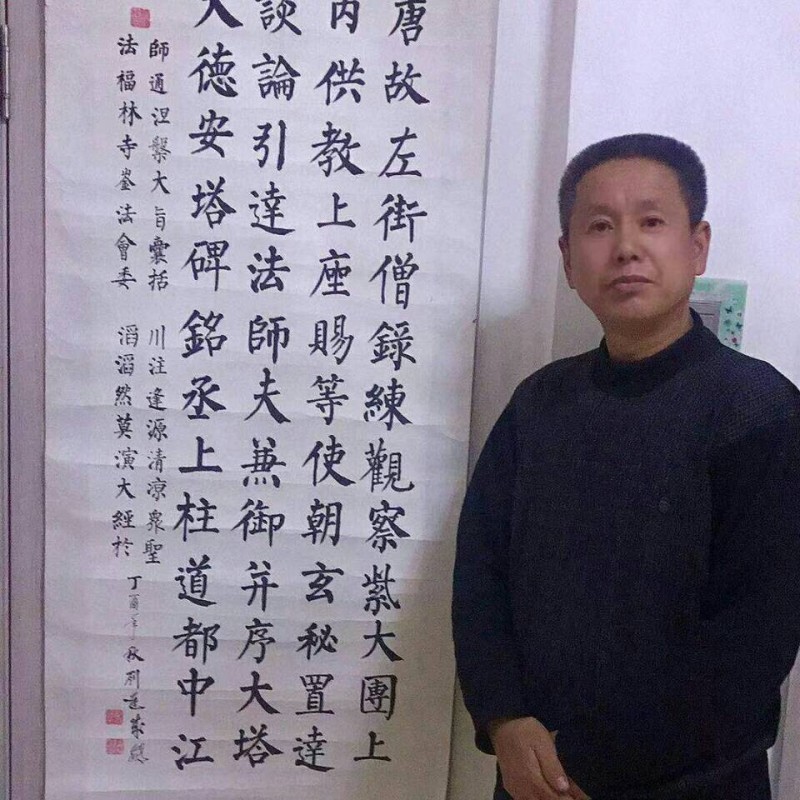 唐故左街僧錄練觀察紫大團上
內供教上座賜等使朝玄秘置達
談論引達法師夫兼御并序大塔
大德安塔碑銘丞上柱道都中江
師通涅槃大旨囊括川注逢源清凉眾聖
法福林寺崟法會委滔滔然莫演大經於
丁酉年秋刘